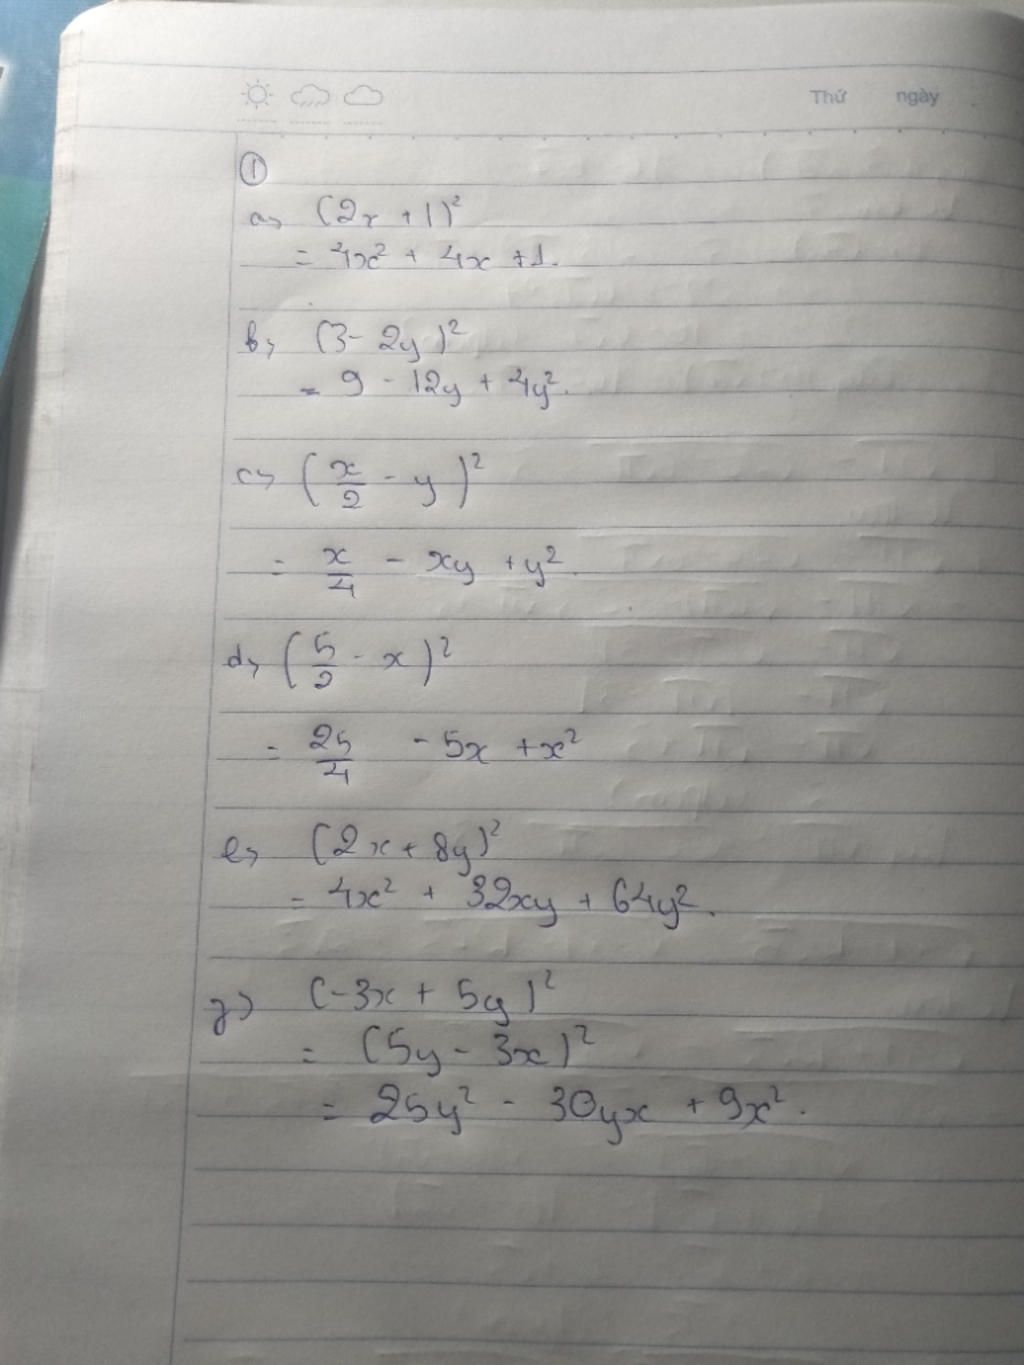 Thứ ngày
①
a, (2x + 1)²
= 4x² + 4x + 1.
b, (3 - 2y)²
= 9 - 12y + 4y².
c, (x/2 - y)²
= x/4 - xy + y².
d, (5/2 - x)²
= 25/4 - 5x + x²
e, (2x + 8y)²
= 4x² + 32xy + 64y².
g) (-3x + 5y)²
= (5y - 3x)²
= 25y² - 30yx + 9x².